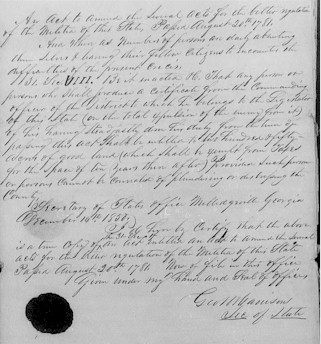 An Act to Amend the Several Acts for the better regulation
of the Militia of this State, Passed August 20th 1781.
And when as Numbers of persons are daily absenting
them selves leaving their fellow Citizens to encounter the
difficulties of the present Crisis.
1st. Sec. VIII. Be it enacted &c. That any person or
persons who shall produce a Certificate from the Commanding
officer of the District to which he belongs to the Legislator
of this State (on the total expulsion of the enemy from it)
of his having Steadfastly done his duty from the time of
passing this Act shall be entitled to two hundred & fifty
acres of good land (which shall be exempt from Taxes
for the space of ten years there after) Provided Such person
or persons Cannot be Convicted of plundering or distressing the
Country.
Secretary of States office Milledgeville Georgia
December 14th
I Certify that the above
is a true Copy of an Act Entitled An Act to Amend the Several
acts for the better regulation of the Militia of this State
Passed August 20th 1781. Now of file in this office
Given under my Hand and Seal of office
Geo W Harrison
Sec of State